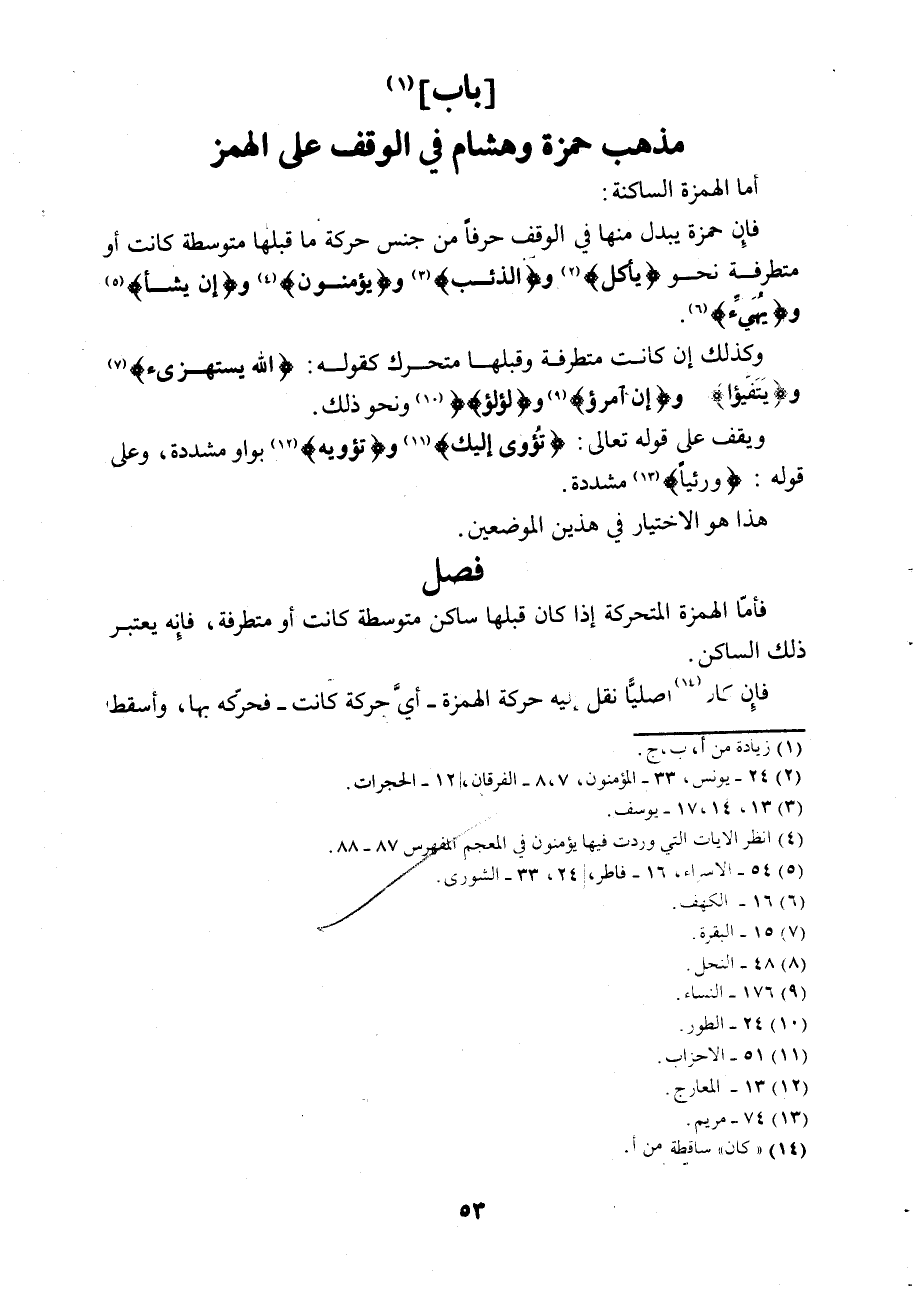 [باب] (١)
مذهب حمزة وهشام في الوقف على الهمز
أما الهمزة الساكنة :
فإن حمزة يبدل منها في الوقف حرفاً من جنس حركة ما قبلها متوسطة كانت أو
متطرفة نحو ﴿يأكل﴾(٢) و﴿الذئب﴾(٣) و﴿يؤمنون﴾(٤) و﴿إن يشأ﴾(٥)
و﴿يُهَيِّء﴾(٦).
وكذلك إن كانت متطرفة وقبلها متحرك كقوله : ﴿الله يستهزىء﴾(٧)
و﴿يَتَفَيؤا﴾ و﴿إن آمرؤ﴾(٩) و﴿لؤلؤ﴾﴿ (١٠) ونحو ذلك.
ويقف على قوله تعالى : ﴿تُؤوى إليك﴾(١١) و﴿تؤويه﴾(١٢) بواو مشددة، وعلى
قوله : ﴿ورئياً﴾(١٣) مشددة.
هذا هو الاختيار في هذين الموضعين.
فصل
فأمّا الهمزة المتحركة إذا كان قبلها ساكن متوسطة كانت أو متطرفة، فإنه يعتبر
ذلك الساكن.
فإن كان(١٤) اصليًّا نقل إليه حركة الهمزة ـ أيَّ حركة كانت ـ فحركه بها، وأسقط
(١) زيادة من أ، ب، ج.
(٢) ٢٤ ـ يونس، ٣٣ ـ المؤمنون، ٧، ٨ ـ الفرقان، ١٢ ـ الحجرات.
(٣) ١٣، ١٤، ١٧ ـ يوسف.
(٤) انظر الايات التي وردت فيها يؤمنون في المعجم المفهرس ٨٧ ـ ٨٨.
(٥) ٥٤ ـ الاسراء، ١٦ ـ فاطر، ٢٤، ٣٣ ـ الشورى.
(٦) ١٦ ـ الكهف.
(٧) ١٥ ـ البقرة.
(٨) ٤٨ ـ النحل.
(٩) ١٧٦ ـ النساء.
(١٠) ٢٤ ـ الطور.
(١١) ٥١ ـ الاحزاب.
(١٢) ١٣ ـ المعارج.
(١٣) ٧٤ ـ مريم.
(١٤) «كان» ساقطة من أ.
٥٣